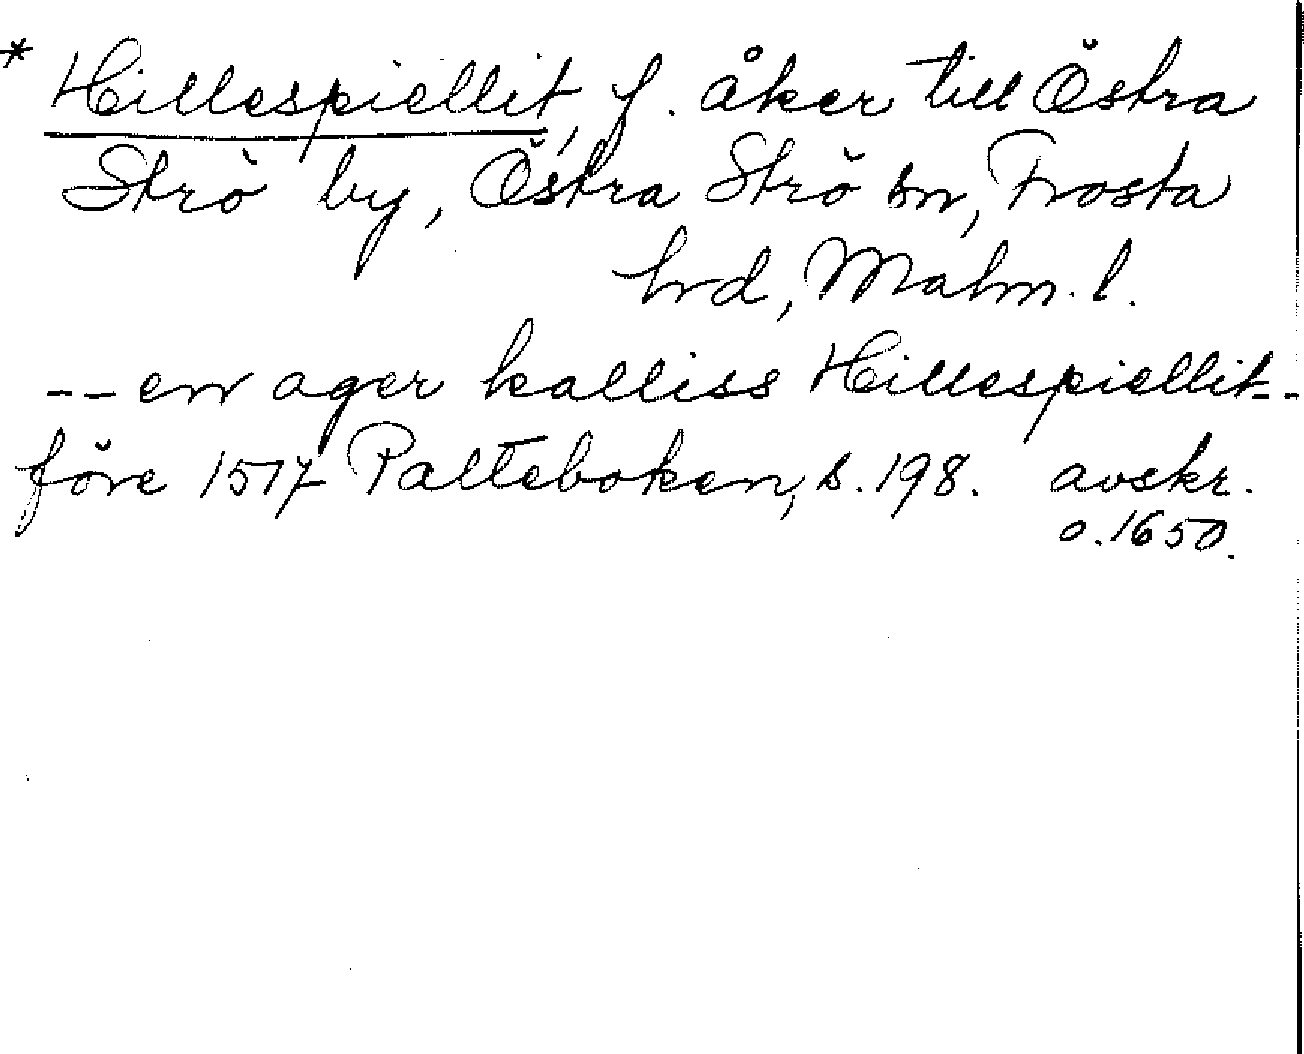 * Hillespiellit, f. åker till Östra
Strö by, Östra Strö sn, Frosta
hrd, Malm. l.
-- en ager kalliss Hillespiellit --
före 1517 Palteboken, s. 198. avskr.
o. 1650.